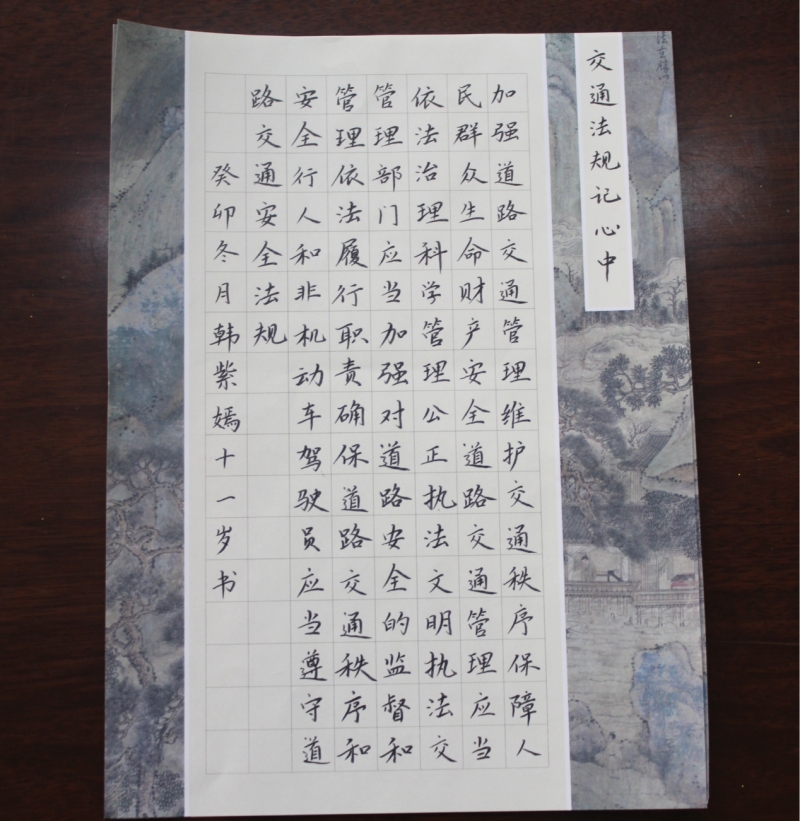 交通法规记心中
加强道路交通管理维护交通秩序保障人
民群众生命财产安全道路交通管理应当
依法治理科学管理公正执法文明执法交
管理部门应当加强对道路安全的监督和
管理依法履行职责确保道路交通秩序和
安全行人和非机动车驾驶员应当遵守道
路交通安全法规
癸卯冬月韩紫嫣十一岁书